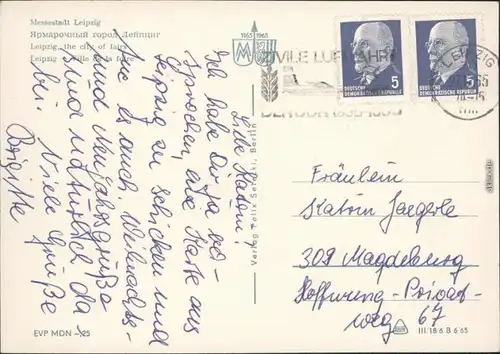 Messestadt Leipzig
Ярмарочный город Лейпциг
Leipzig, the city of fairs
Leipzig
1165 1965
M
ZIVILE LUFTFAHRT
LEIPZIG
5
5
DEUTSCHE
DEMOKRATISCHE REPUBLIK
DEUTSCHE
DEMOKRATISCHE REPUBLIK
Liebe Katrin!
Ich habe Dir ja ver-
sprochen, eine Karte aus
Leipzig zu schicken und
nun ist auch Weihnachts-
und Neujahrsgrüße
sind natürlich da-
bei.
Viele Grüße
Brigitte
Verlag Felix Setecki, Berlin
Fräulein
Katrin Jaegerle
309 Magdeburg
Hoffnung-Privat-
weg 67
EVP MDN -,25
III 18 6 B 6 65